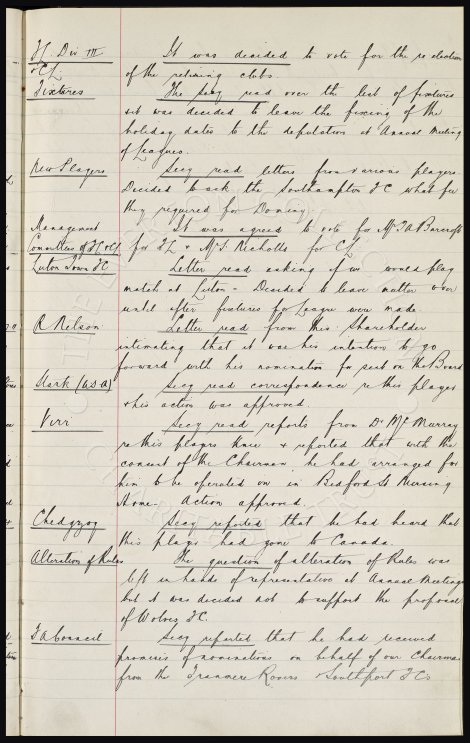 FL Div III It was decided to vote for the re election
& CL of the retiring clubs.
Fixtures The Secy read over the list of fixtures
& it was decided to leave the fixing of the
holiday dates to the deputation at Annual Meeting
of Leagues.
New Players Secy read letters from various players.
Decided to ask the Southampton FC what fee
they required for Dominy.
Management It was agreed to vote for Mr T A Barcroft
Committees of FL & CL for FL & Mr S. Nicholls for CL
Luton Town FC Letter read asking if we would play
match at Luton - Decided to leave matter over
until after fixtures for League were made.
R Nelson Letter read from this Shareholder
intimating that it was his intention to go
forward with his nomination for seat on the Board
Stark (U.S.A) Secy read correspondence re this player
& his action was approved.
Virr Secy read reports from Dr McMurray
re this players knee & reported that with the
consent of the Chairman he had arranged for
him to be operated on in Bedford St Nursing
Home. Action approved.
Chedgzoy Secy reported that he had heard that
this player had gone to Canada.
Alteration of Rules The question of alteration of Rules was
left in hands of representatives at Annual Meetings
but it was decided not to support the proposal
of Wolves FC.
FA Council Secy reported that he had received
promises of nominations on behalf of our Chairman
from the Tranmere Rovers & Southport FCs